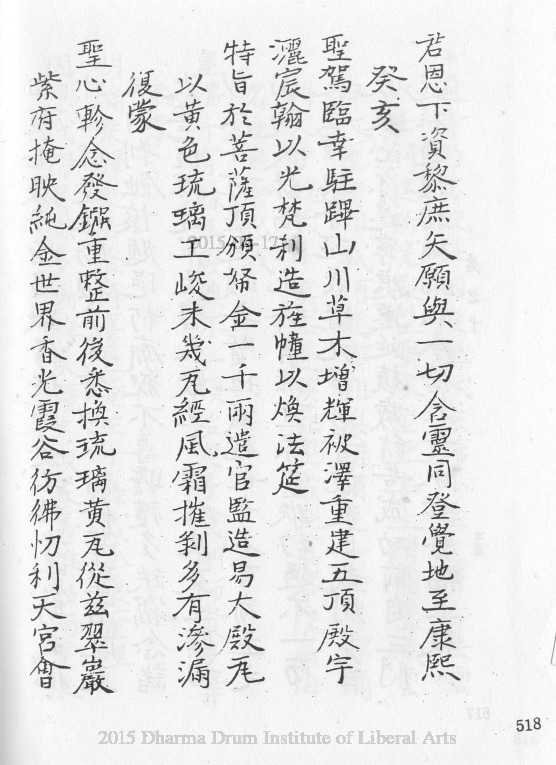 君恩下資黎庶矢願與一切含靈同登覺地至康熙
癸亥
聖駕臨幸駐蹕山川草木增輝被澤重建五頂殿宇
灑宸翰以光梵刹造旌幢以煥法筵
特旨於菩薩頂頒帑金一千兩遣官監造易大殿瓦
以黃色琉璃工峻未幾瓦經風霜摧剝多有滲漏
復蒙
聖心軫念發鏹重整前後悉換琉璃黃瓦從兹翠巖
紫府掩映純金世界香光霞谷彷彿忉利天宮會
518
2015 Dharma Drum Institute of Liberal Arts